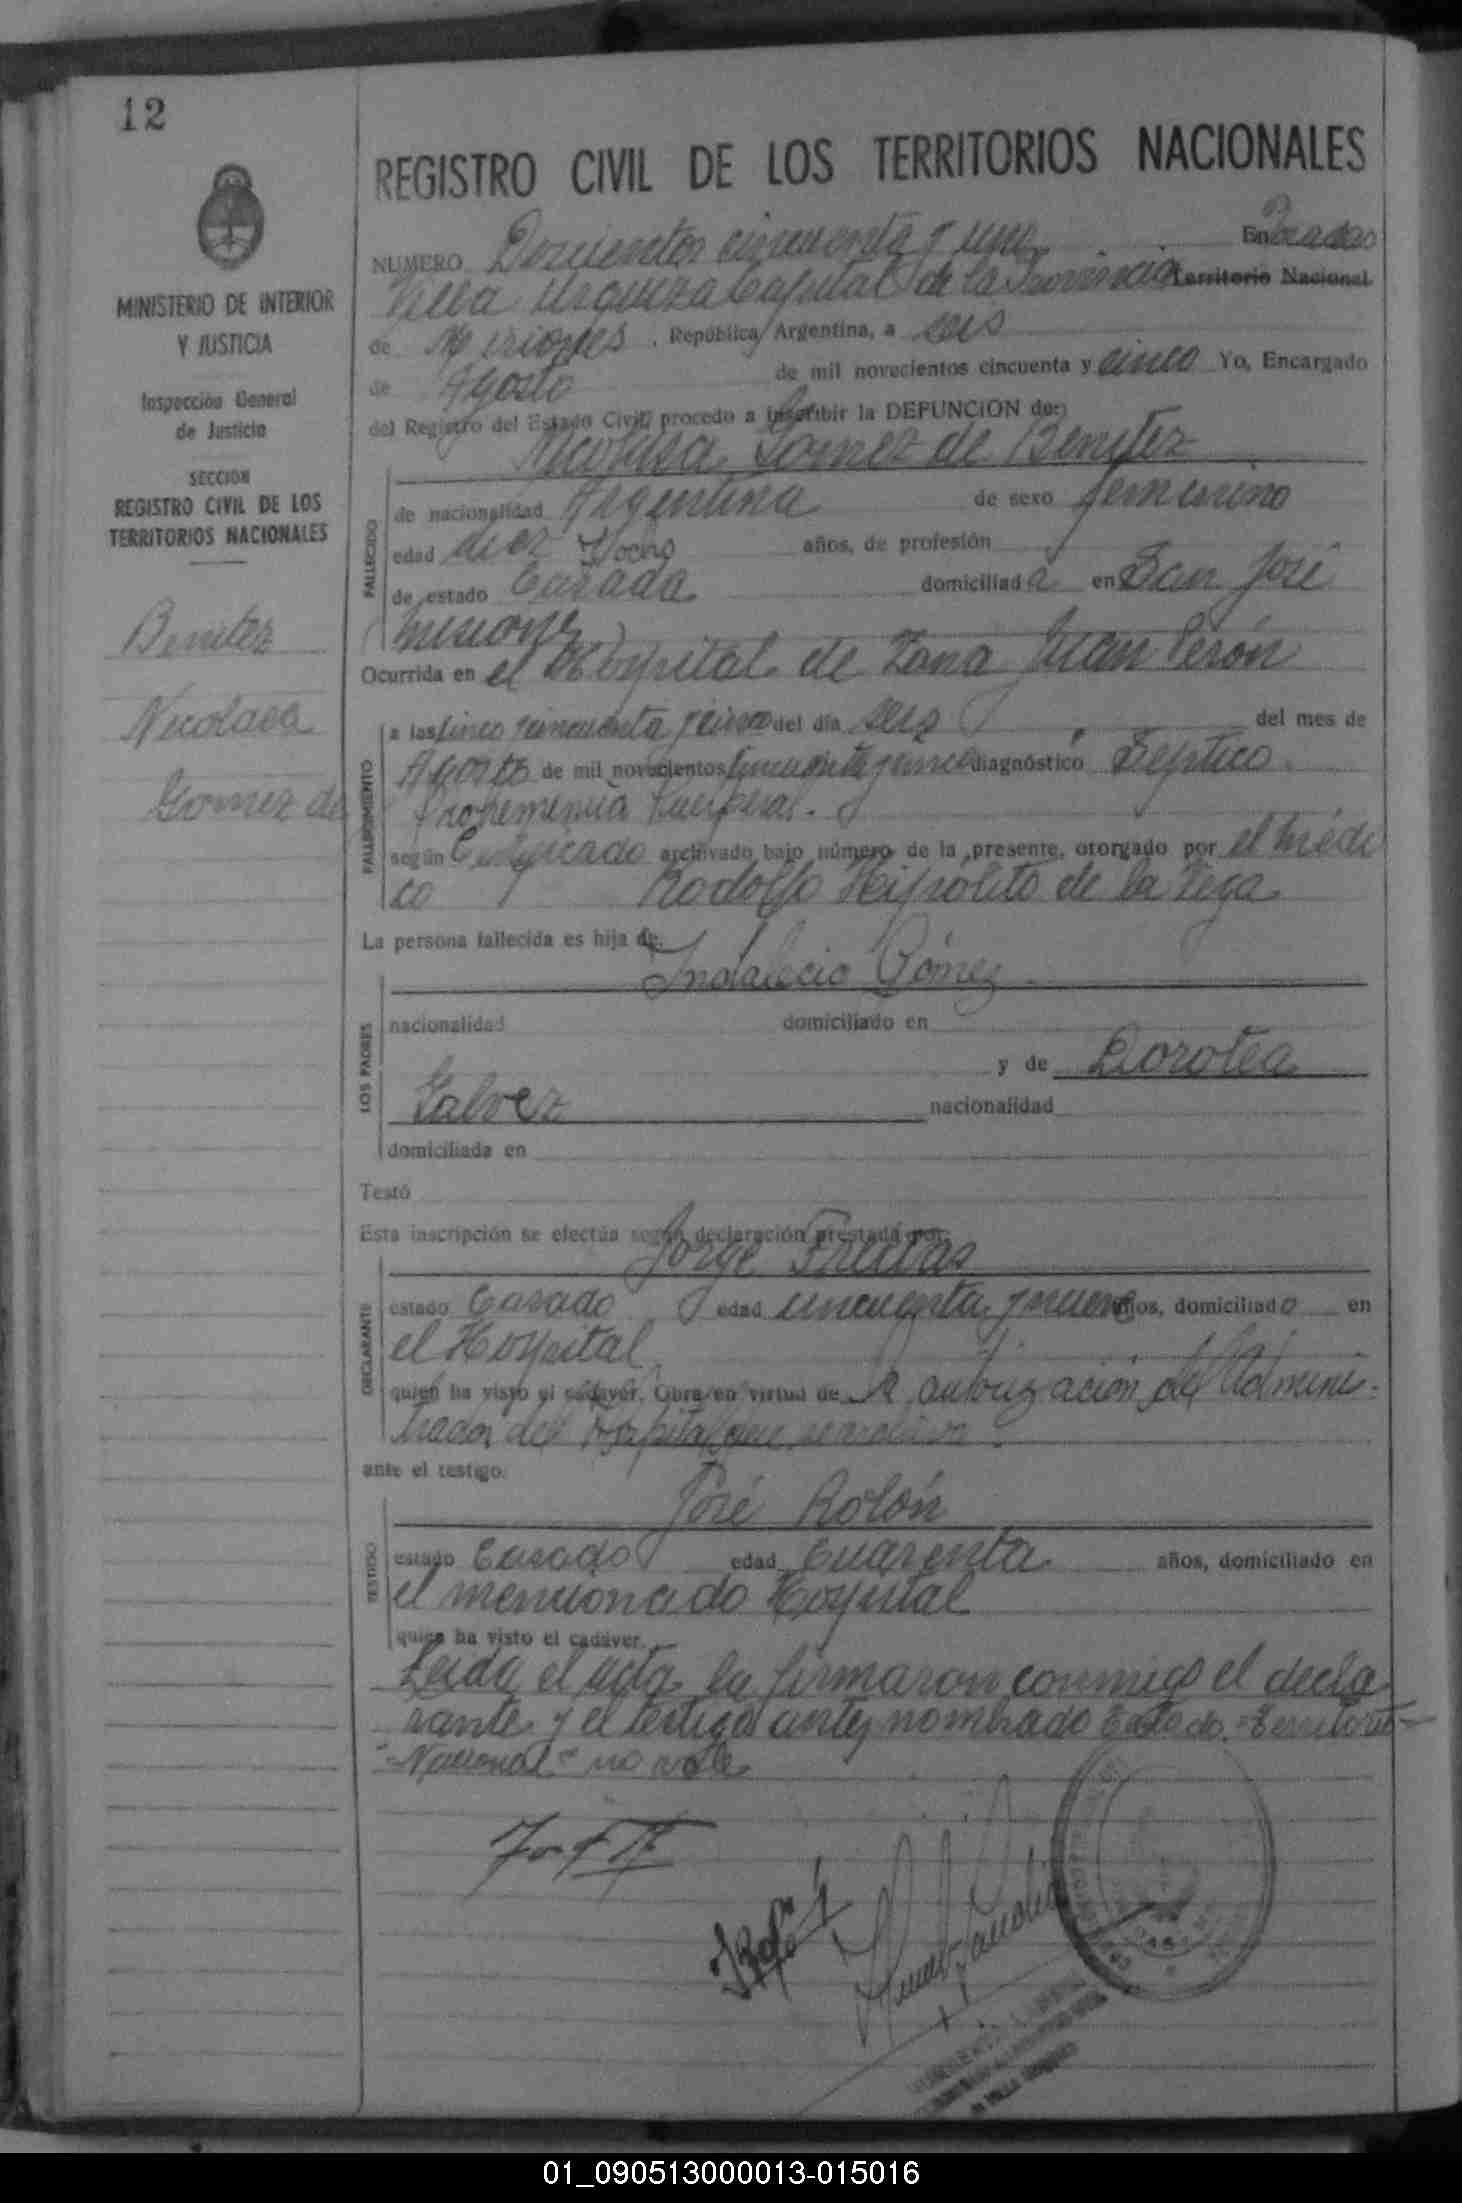 12
REGISTRO CIVIL DE LOS TERRITORIOS NACIONALES
MINISTERIO DE INTERIOR
Y JUSTICIA
Inspección General
de Justicia
SECCION
REGISTRO CIVIL DE LOS
TERRITORIOS NACIONALES
Benitez
Nicolasa
Gomez de
NUMERO Doscientos cincuenta y uno En Posadas
Villa Urquiza Capital de la Provincia Territorio Nacional
de Misiones, República Argentina, a seis
de Agosto de mil novecientos cincuenta y cinco Yo, Encargado
del Registro del Estado Civil, procedo a inscribir la DEFUNCION de:
Nicolasa Gomez de Benitez
FALLECIDO
de nacionalidad Argentina de sexo femenino
edad diez y ocho años, de profesión
de estado Casada domiciliada en San José
(Misiones)
Ocurrida en el Hospital de Zona Juan Perón
FALLECIMIENTO
a las cinco y cincuenta y cinco del día seis del mes de
Agosto de mil novecientos cincuenta y cinco diagnóstico Septico
Puerperal.-
según Certificado archivado bajo número de la presente, otorgado por el médi
co Rodolfo Hipólito de la Vega
La persona fallecida es hija de:
Indalecio Gómez
LOS PADRES
nacionalidad domiciliado en
y de Dorotea
Galvez nacionalidad
domiciliada en
Testó
Esta inscripción se efectúa según declaración prestada por:
Jorge Freitas
DECLARANTE
estado Casado edad cincuenta y nueve años, domiciliado en
el Hospital
quien ha visto el cadáver. Obra en virtud de la autorización del Adminis-
trador del Hospital que se archiva.
ante el testigo:
José Rolón
TESTIGO
estado Casado edad cuarenta años, domiciliado en
el mencionado Hospital
quien ha visto el cadáver.
Leida el acta la firmaron conmigo el decla
rante y el testigo antes nombrado Testado. "Territorio-
"Nacional" no vale
01_090513000013-015016